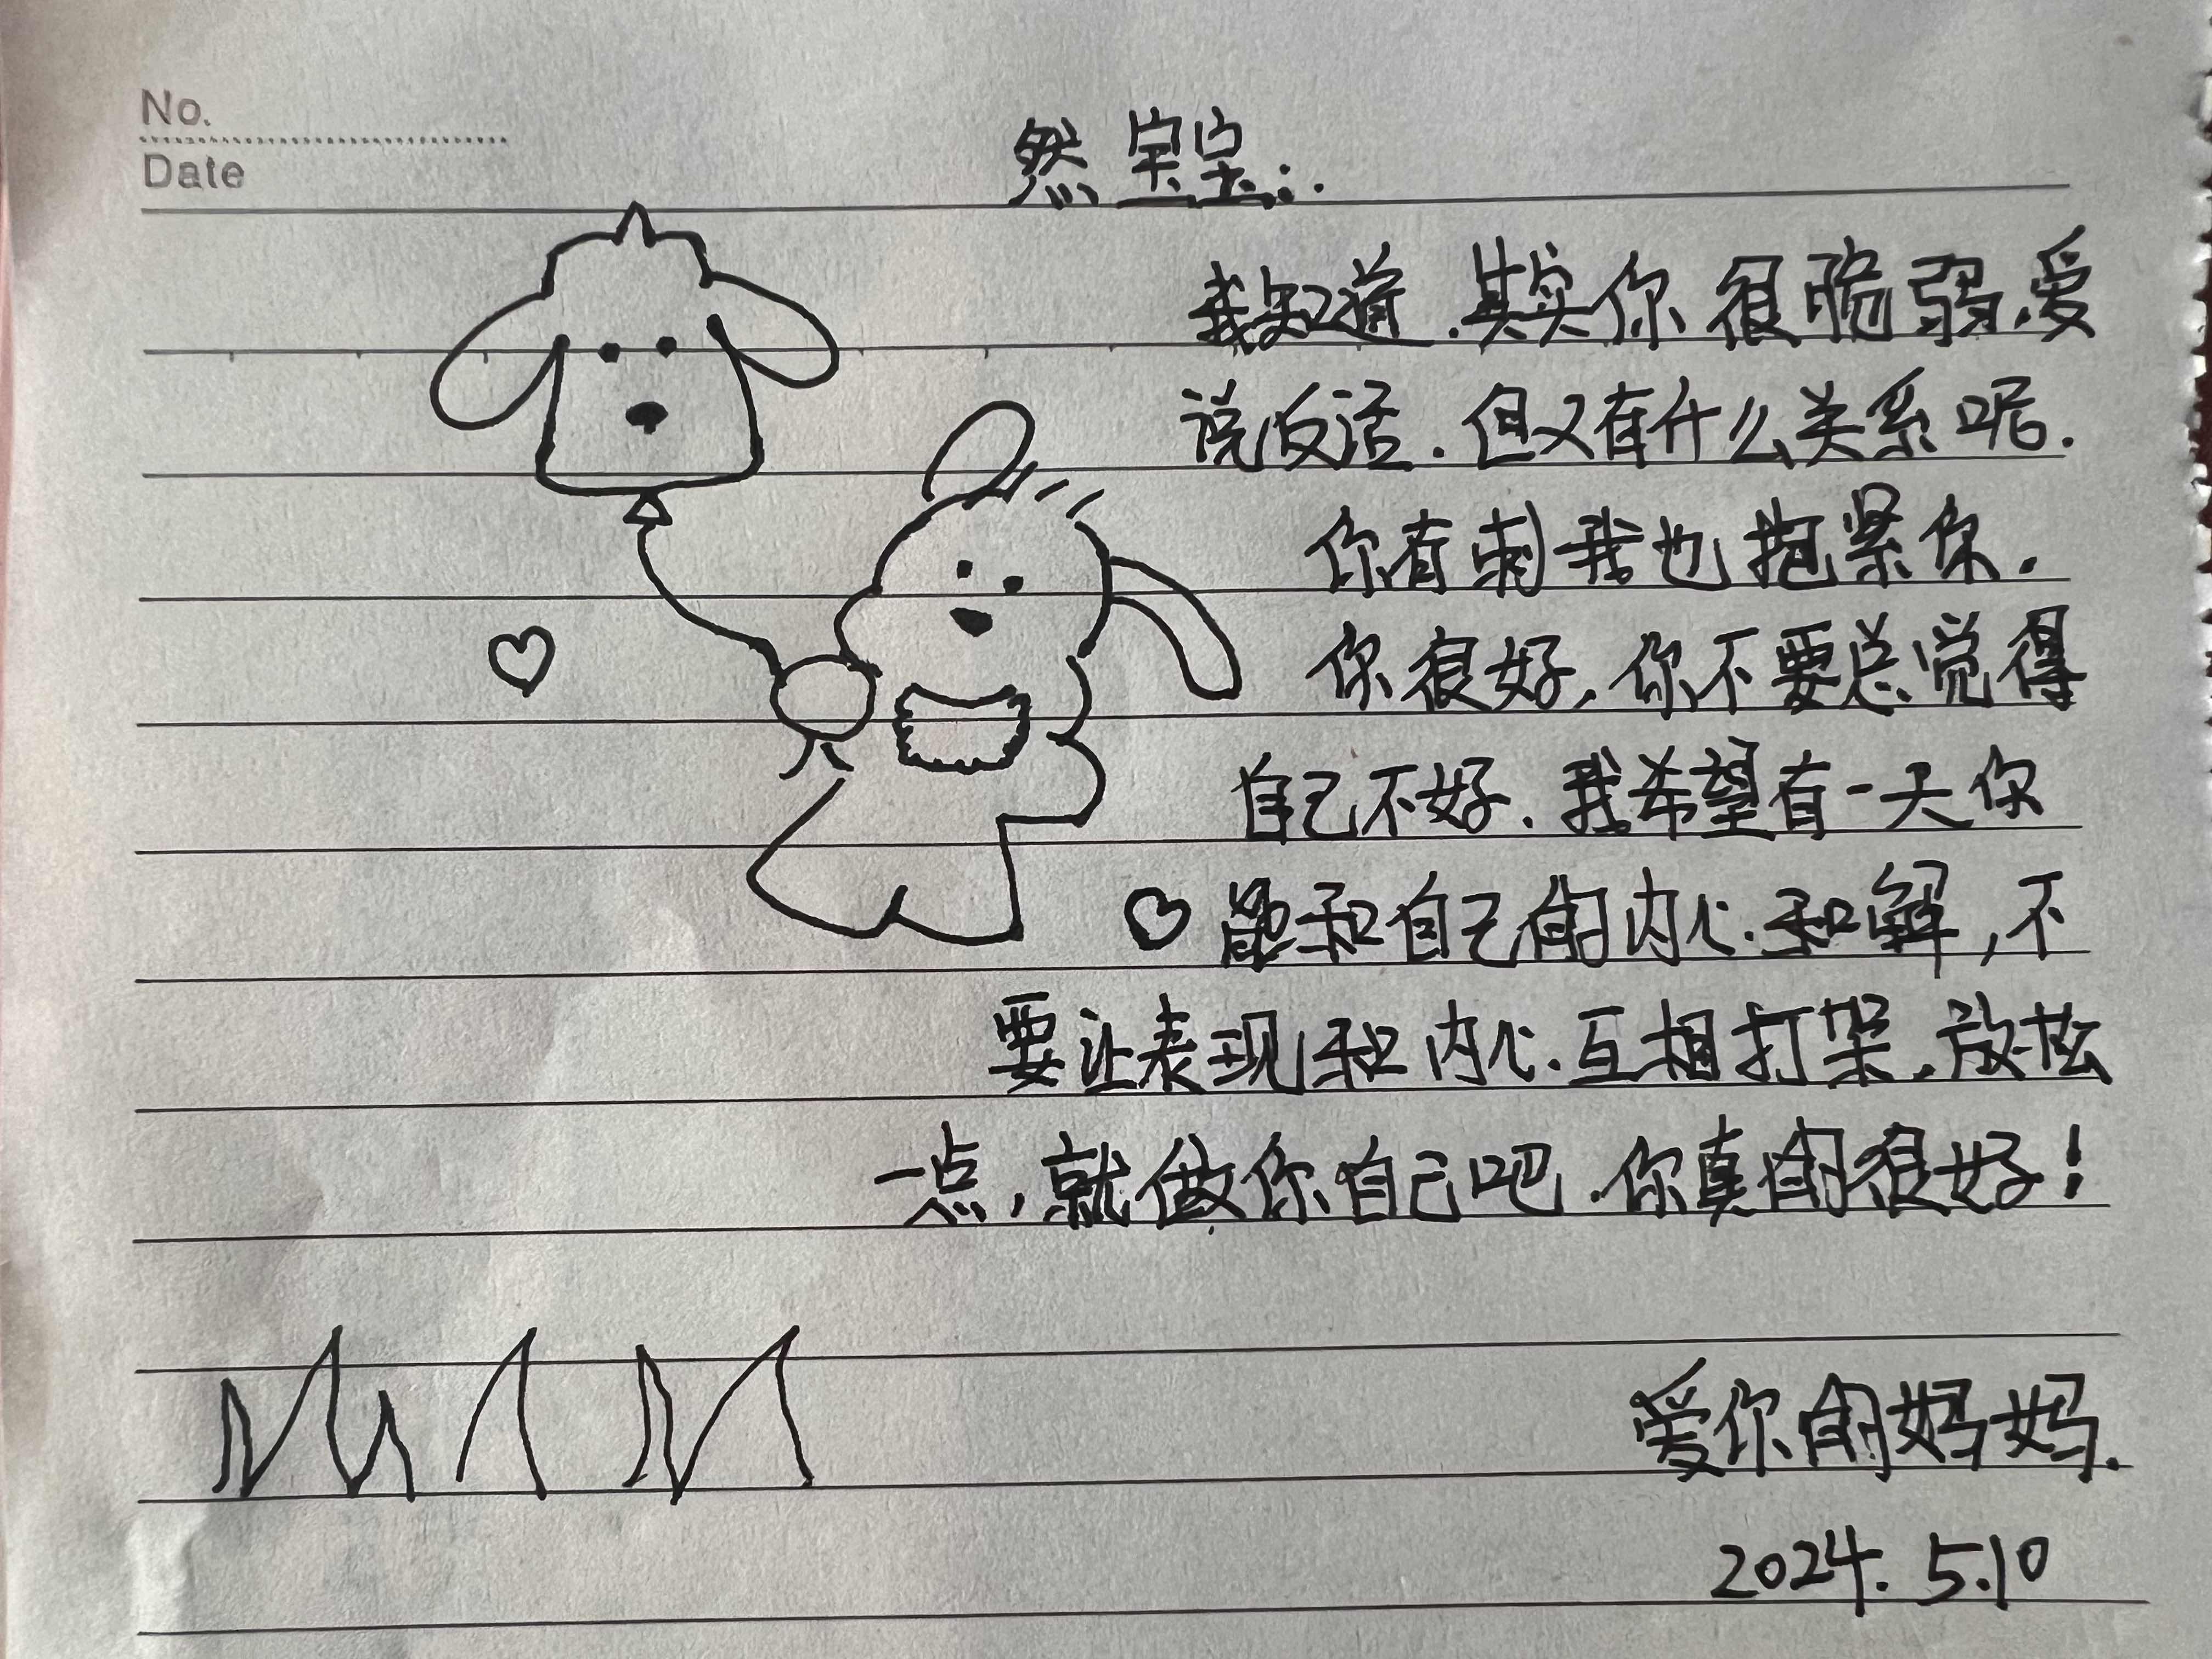 No.
Date
然宝宝:.
我知道.其实你很脆弱.爱
说反话.但又有什么关系呢.
你有刺我也抱紧你.
你很好,你不要总觉得
自己不好.我希望有一天你
能和自己的内心.和解,不
要让表现和内心.互相打架.放松
一点,就做你自己吧.你真的很好!
爱你的妈妈.
2024.5.10